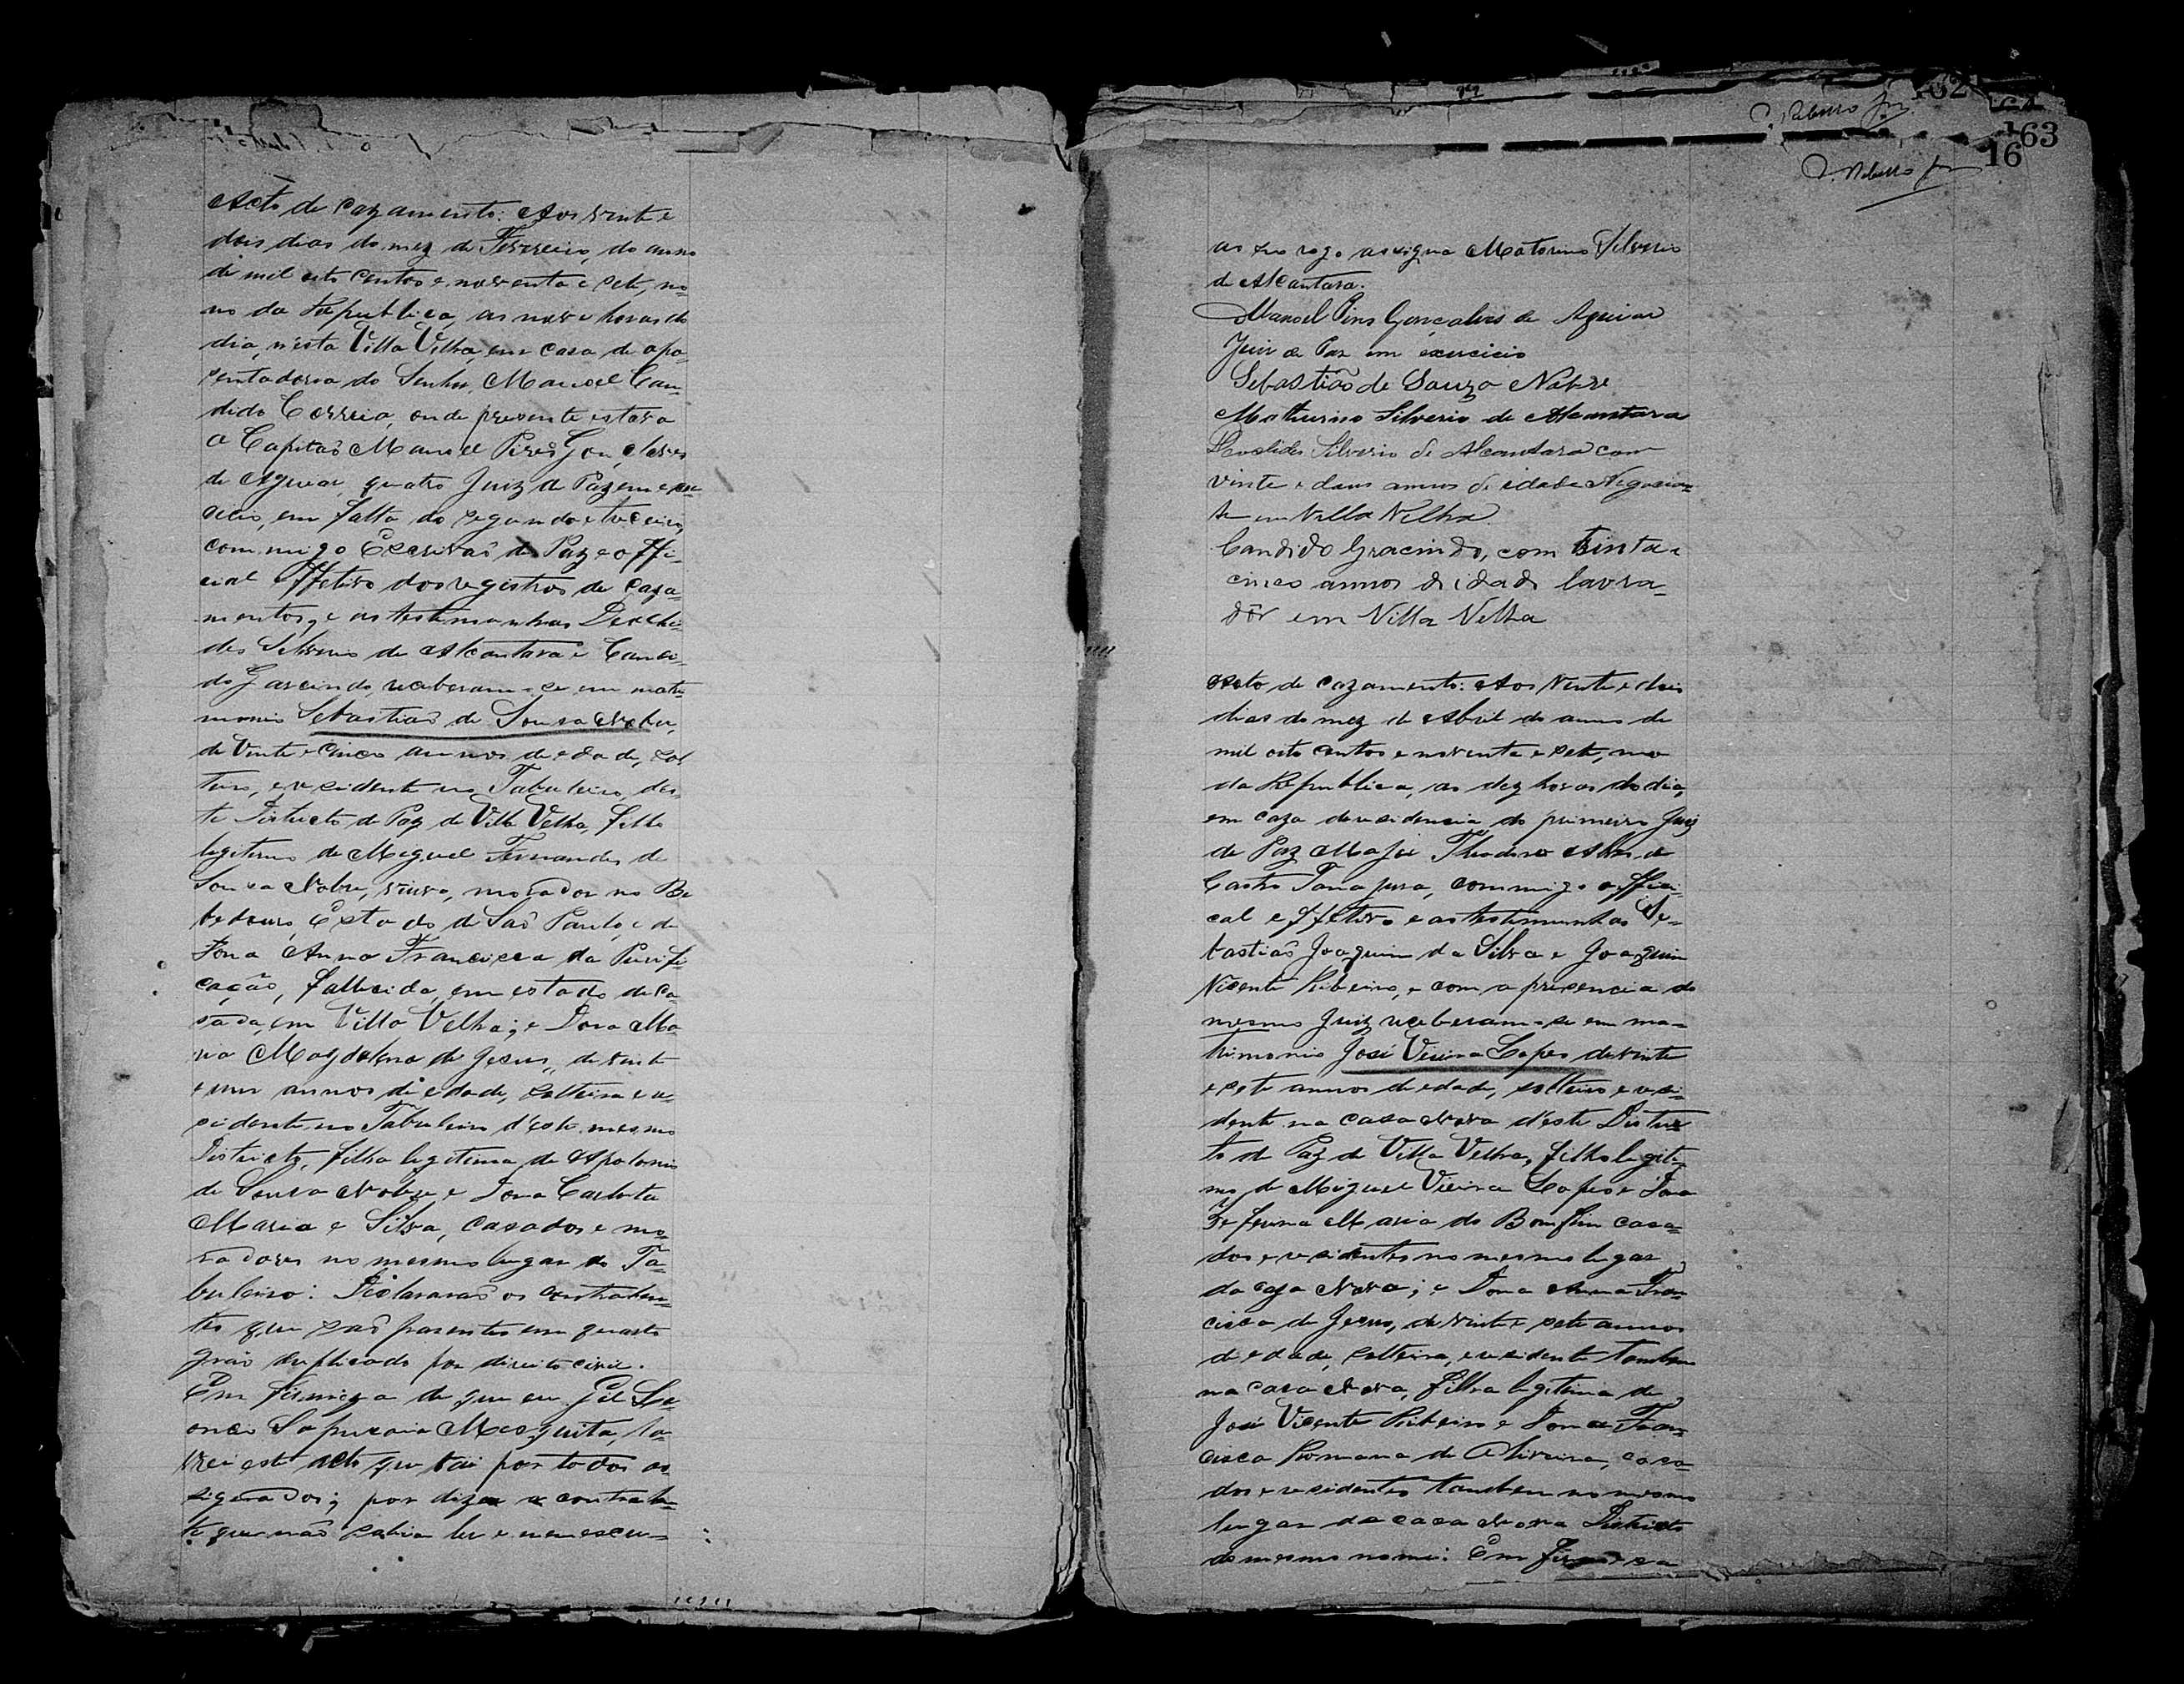 Acto de cazamento: Aos vinte e
dois dias do mez de Fevereiro, do anno
de mil oito centos e noventa e sete, no-
no da Republica, as nove horas do
dia, n'esta Villa Velha, em casa de apo-
sentadoria do Senhor Manoel Can-
dido Correia, onde presente estava
o Capitaõ Manoel Pires Gonçalves
de Aguiar, quatro Juiz de Paz em exer-
cicio, em falta do segundo e terceiro,
commigo Escrivaõ de Paz e offi-
cial effetivo dos registros de caza-
mentos, e as testimunhas Deocli-
des Silverio de Alcantara e Candi-
do Gracindo, receberam-se em matri-
monio Sebastiaõ de Sousa Nobre,
de vinte e cinco annos de edade, sol-
teiro, e residente no Tabuleiro, des-
te Districto de Paz de Villa Velha, filho
legitimo de Miguel Fernandes de
Sousa Nobre, viuvo, morador no Be-
bedouro, Estado de Saõ Paulo, e de
Dona Anna Francisca da Purifi-
cação, fallecida, em estado de ca-
sada, em Villa Velha; e Dona Ma-
ria Magdalena de Jesus, de vinte
e um annos de edade, solteira e re-
sidente no Tabuleiro d'este mesmo
Districto, filha legitima de Apolonio
de Sousa Nobre e Dona Carlota
Maria e Silva, casados e mo-
radores no mesmo lugar do Ta-
buleiro: Declararaõ os contrahen-
tes que saõ parentes em quarto
gráo duplicado por direito civil.
Em firmeza do que eu Gil Le-
oncio Sapucaia Mesquita, la-
vrei este acto que vai por todos as-
signados; por dizer a contrahen-
te que não sabia ler e nem escre-
as seo rogo assigna Matorino Silverio
de Alcantara.
Manoel Pires Gonçalves de Aguiar
Juiz de Paz em exercicio
Sebastião de Souza Nobre
Mathurino Silverio de Alcantara
Deoclides Silverio de Alcantara com
vinte e dous annos de idade Negocian-
te em Villa Velha.
Candido Gracindo, com trinta e
cinco annos de idade lavra-
dôr em Villa Velha
Acto de cazamento: Aos vinte e dois
dias do mez de Abril do anno de
mil oito centos e noventa e sete, nono
da Republica, as dez horas do dia,
em caza de residencia do primeiro Juiz
de Paz Major Theodoro Alves de
Castro Tanajura, commigo offici-
cal effetivo e as testimunhas Se-
bastiaõ Joaquim da Silva e Joaquim
Vicente Ribeiro, e com a presencia do
mesmo Juiz receberam-se em ma-
trimonio José Vieira Lopes de vinte
e sete annos de edade, solteiro e resi-
dente na casa Nova d'este Distric-
to de Paz de Villa Velha, filho legiti-
mo de Miguel Vieira Lopes e Dona
Maria do Bomfim casa-
dos e residentes no mesmo lugar
da caza Nova; e Dona Anna Fran-
cisca de Jesus, de vinte e sete annos
de edade, solteira, e residente tambem
na casa Nova, filha legitima de
José Vicente Ribeiro e Dona Fran-
cisca Romana de Oliveira, casa-
dos e residentes tambem no mesmo
lugar da casa Nova Districto
do mesmo nome: Em firmeza
162
163
16